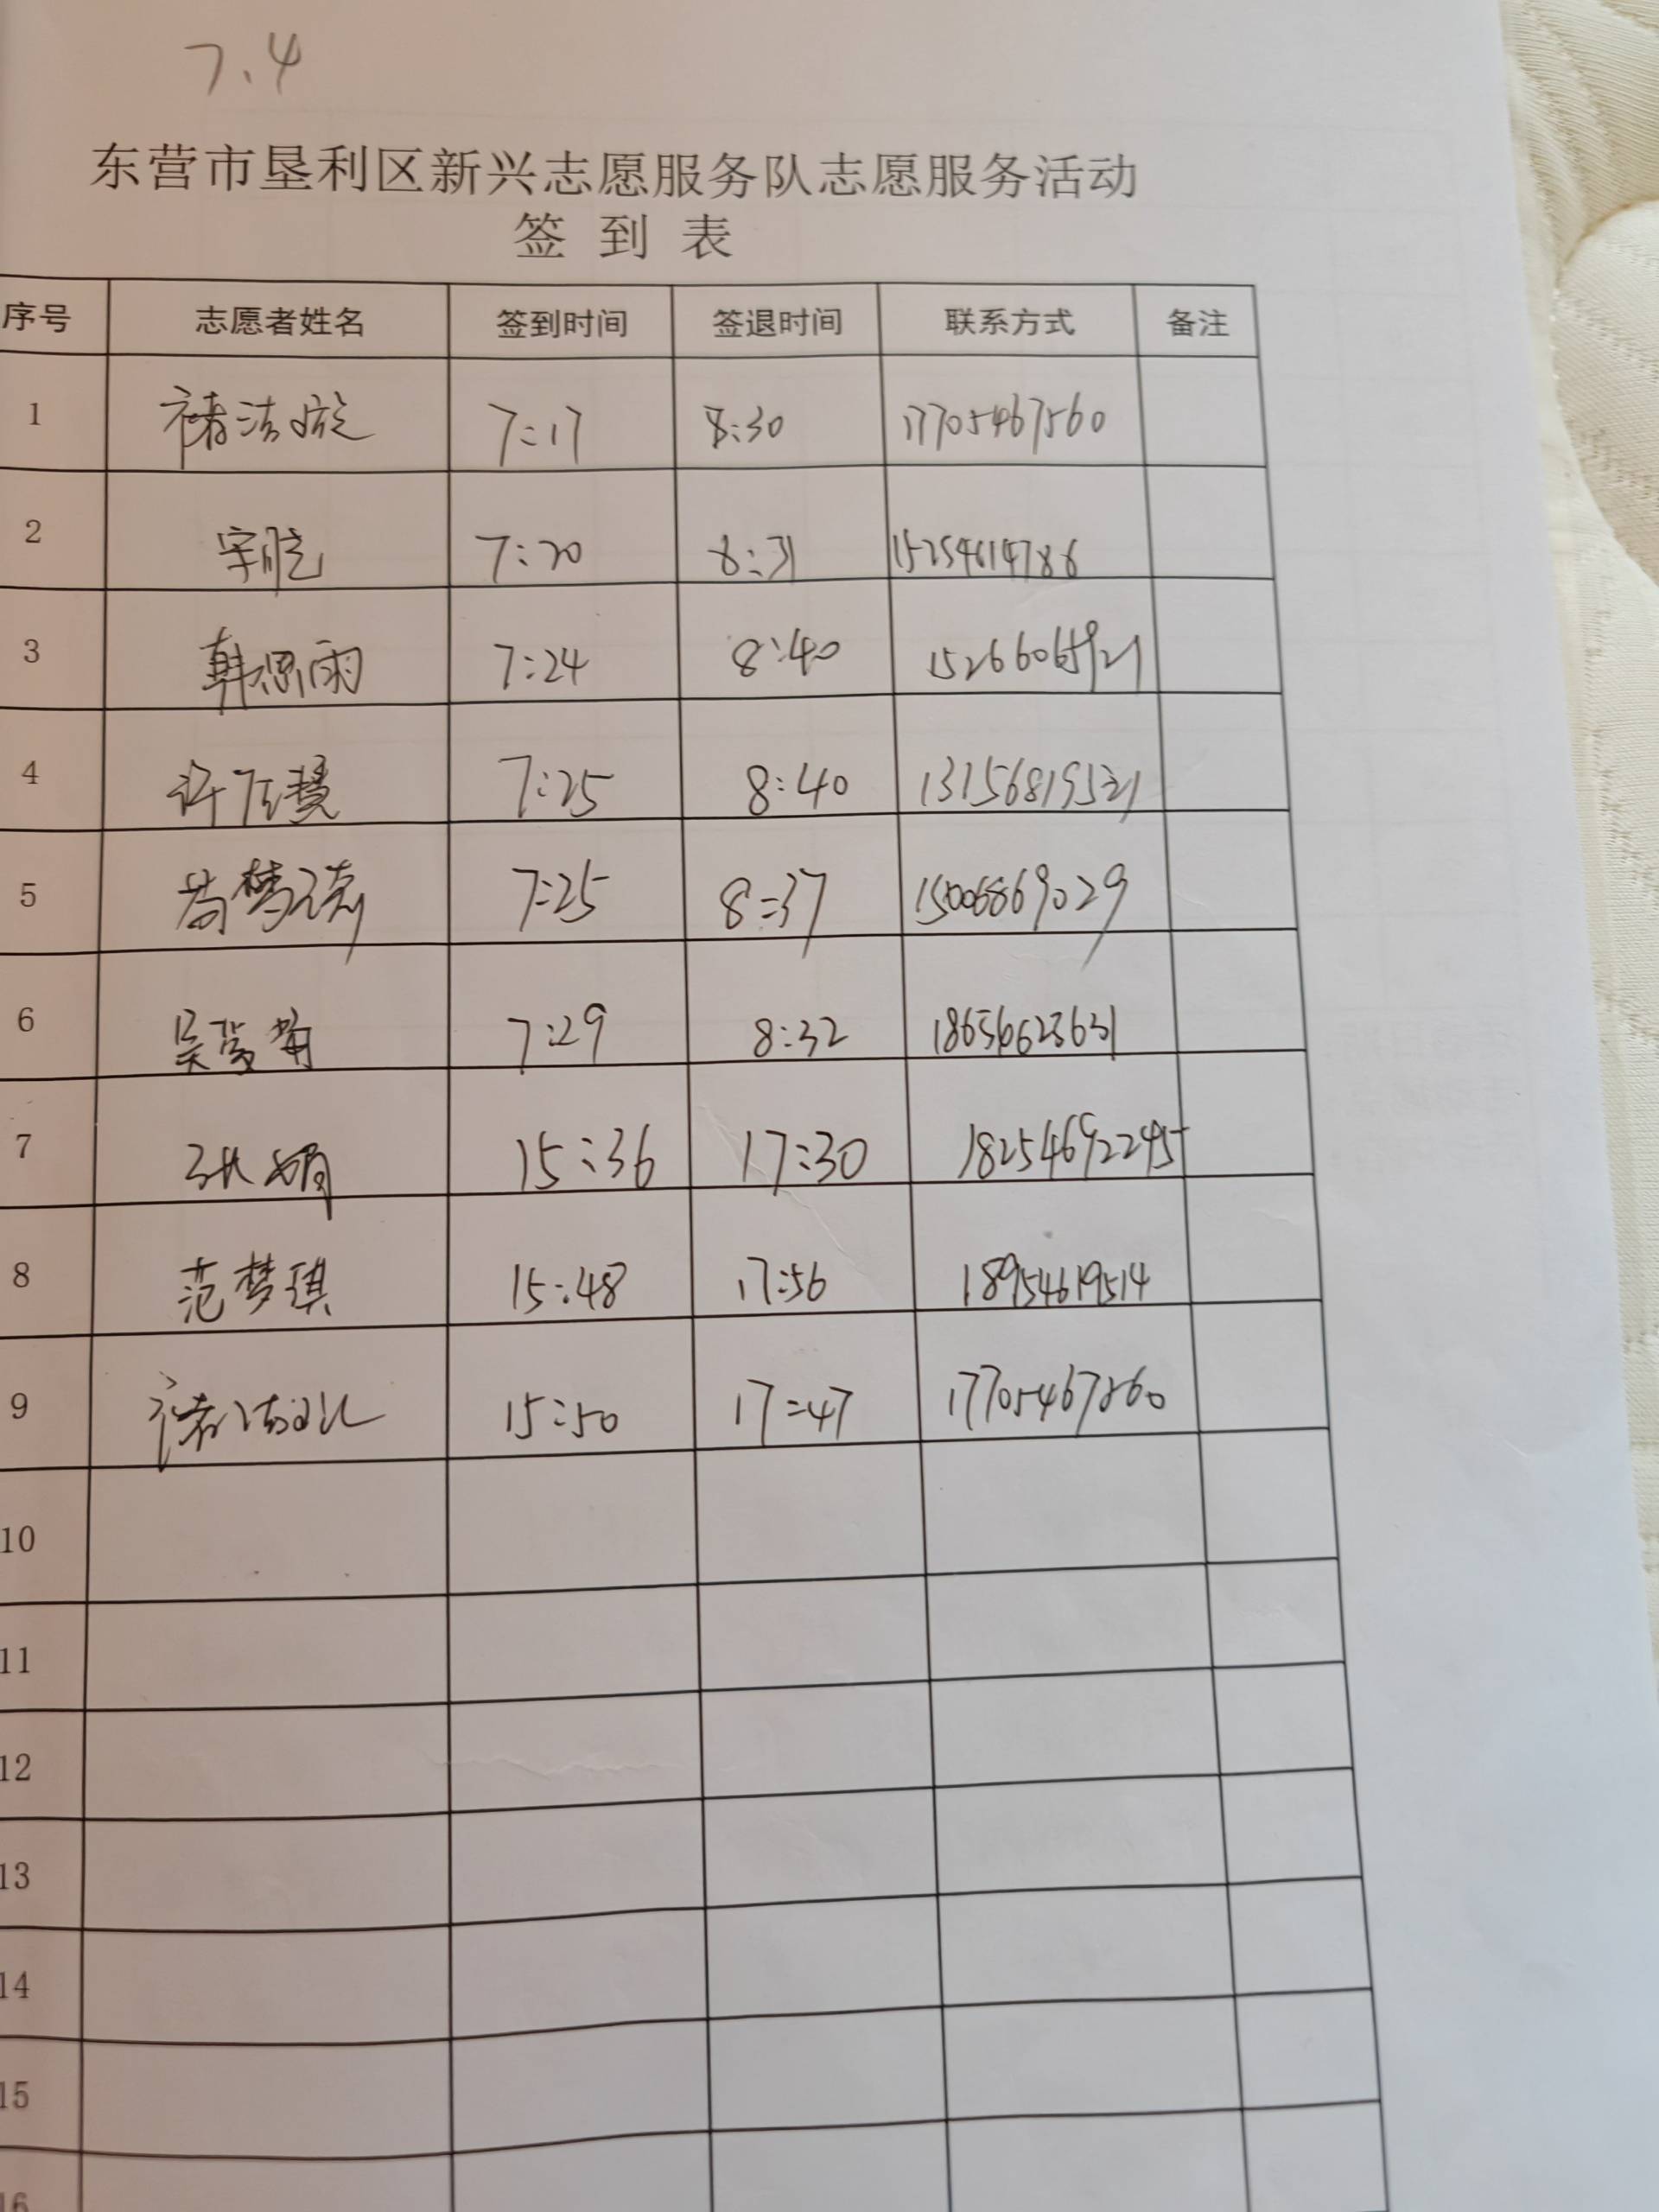 7.4
东营市垦利区新兴志愿服务队志愿服务活动
签 到 表
序号 志愿者姓名 签到时间 签退时间 联系方式 备注
1 褚洁 7:17 8:30 17705467560
2 7:20 8:31 15254614786
3 韩思雨 7:24 8:40
4 许 慧 7:25 8:40
5 苟梦 7:25 8:37 15006869029
6 吴 菊 7:29 8:32
7 张娟 15:36 17:30 18254692245
8 范梦琪 15:48 17:56 18954619514
9 褚洁 15:50 17:47
10
11
12
13
14
15
16